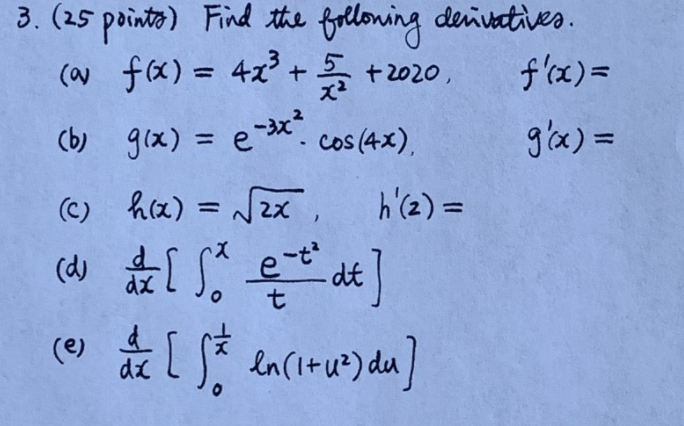 3. (25 points) Find the following derivatives.
(a) f(x) = 4x³ + 5/x² + 2020, f'(x) =
(b) g(x) = e^(-3x²) · cos(4x), g'(x) =
(c) h(x) = √(2x), h'(2) =
(d) d/dx [ ∫₀ˣ e^(-t²)/t dt ]
(e) d/dx [ ∫₀^(1/x) ln(1+u²) du ]